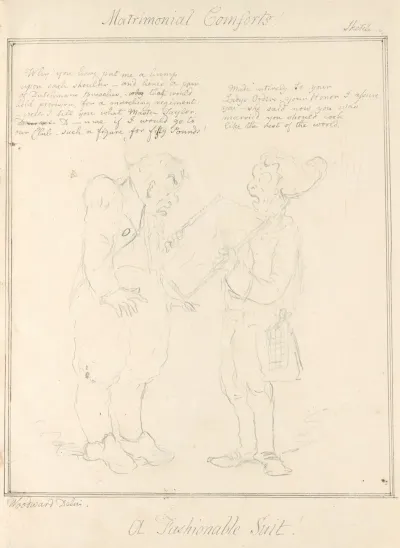 Matrimonial Comforts!
Sketch
Why you have put me a hump
upon each shoulder – and here's a pair
of Dutchman breeches, that would
hold provision for a marching regiment
I tell you what Master Taylor
D – n me if I would go to
our Club – such a figure, for fifty Pounds!
Made entirely to your
Ladys Orders, your Honor I assure
you – she said now you was
married you should look
like the rest of the world.
Woodward Delin.
A Fashionable Suit!